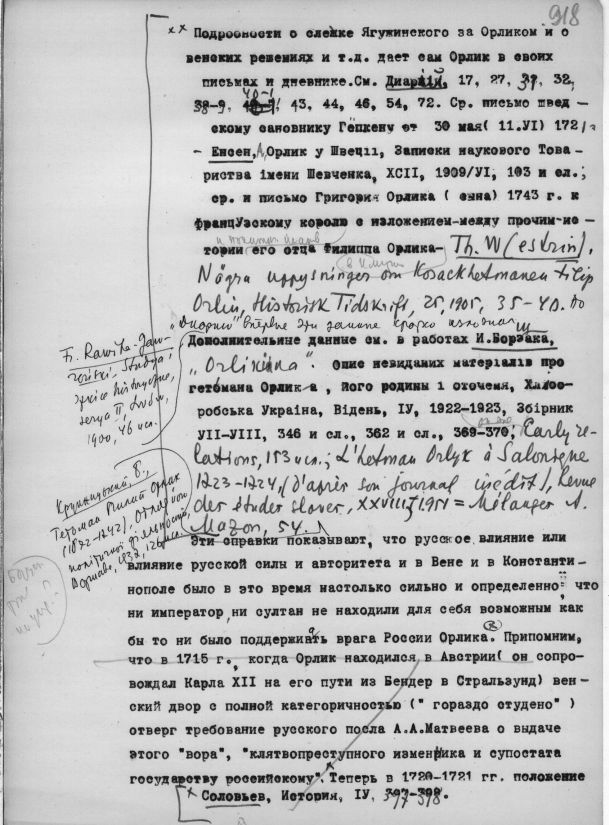 918
×× Подробности о слежке Ягужинского за Орликом и о
венских решениях и т.д. дает сам Орлик в своих
письмах и дневнике.См. Диарій, 17, 27, 31, 32,
38-9, 40-1, 43, 44, 46, 54, 72. Ср. письмо швед -
скому сановнику Гепкену от 30 мая( 11.УІ) 172
- Енсен,А,Орлик у Швеції, Записки наукового Това -
риства імени Шевченка, ХСІІ, 1909/УІ, 103 и сл.;
ср. и письмо Григория Орлика ( сына) 1743 г. к
французскому королю с изложением-между прочим-ис-
тории его отца Филиппа Орлика- Th. W(estrin).
Några upplysningar om Kosackhetmanen Filip
Orlik, Historisk Tidskrift, 25, 1905, 35-40. До
Дополнительные данные см. в работах И.Борзака,
„Orlikiana". Опис невиданих матеріалів про
гетьмана Орлика , його родину і оточемя, Хліборобська Україна, Відень, ІУ, 1922-1923, Збірник
УІІ-УІІІ, 346 и сл., 362 и сл., 369-370, Early re-
lations, 153 исл.; L'hetman Orlyk à Salonique
1723-1724, (d'après son journal inédit), Revue
des études slaves, XXVIII, 1951 = Mélanges A.
Mazon, 54.
Fr. Rawita-Gaw-
roński, Studya i
szkice historyczne,
serya II, Lwów,
1900, 46 исл.
Крупницький, Б.,
Гетьман Пилип Орлик
(1672-1742). Огляд його
політичної діяльності,
Варшава, 1937, 126 исл.
Эти справки показывают, что русское влияние или
влияние русской силы и авторитета и в Вене и в Константи-
нополе было в это время настолько сильно и определенно, что
ни император,ни султан не находили для себя возможным как
бы то ни было поддержать врага России Орлика. Припомним,
что в 1715 г., когда Орлик находился в Австрии( он сопро-
вождал Карла XII на его пути из Бендер в Стральзунд) вен-
ский двор с полной категоричностью (" гораздо студено" )
отверг требование русского посла А.А.Матвеева о выдаче
этого "вора", "клятвопреступного изменника и супостата
государству российскому".× Теперь в 1720-1721 гг. положение
× Соловьев, История, ІУ, 397-398.